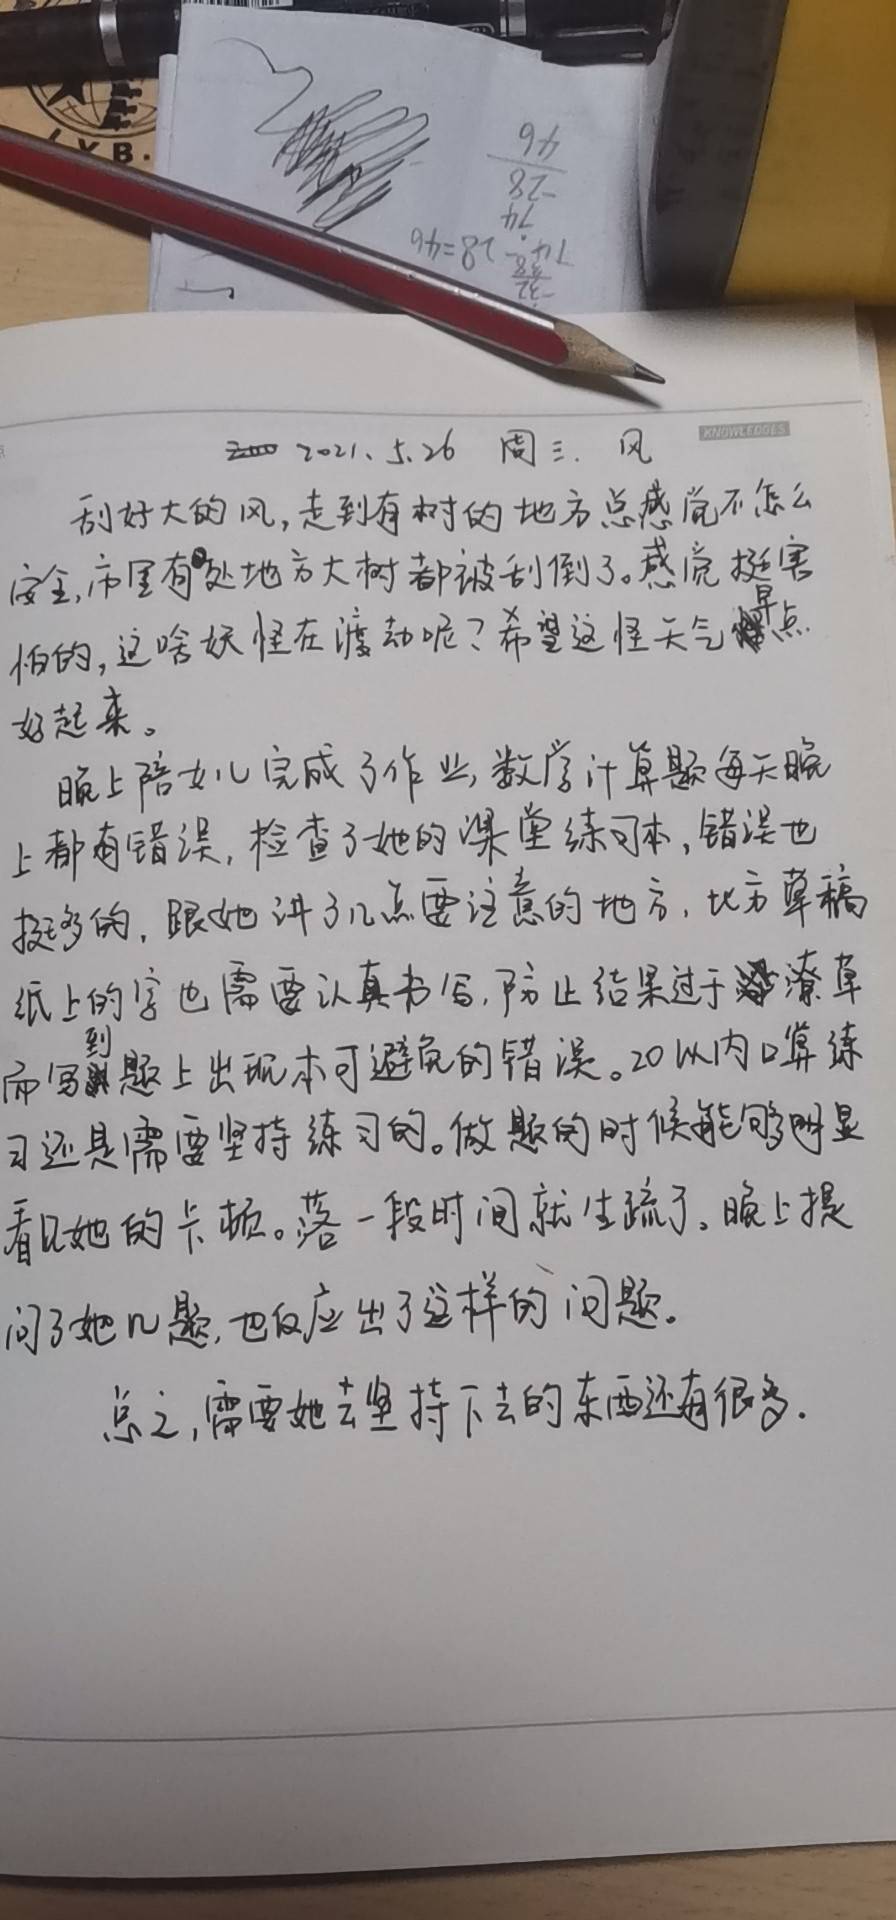 L.Y.B.
46
-28
74
74-28=46
KNOWLEDGES
2021.5.26 周三. 风
刮好大的风,走到有树的地方总感觉不怎么
安全,市里有处地方大树都被刮倒了。感觉挺害
怕的,这啥妖怪在渡劫呢?希望这怪天气早点
好起来。
晚上陪女儿完成了作业,数学计算题每天晚
上都有错误,检查了她的课堂练习本,错误也
挺多的,跟她讲了几点要注意的地方,比方草稿
纸上的字也需要认真书写,防止结果过于潦草
而写到题上出现本可避免的错误。20以内口算练
习还是需要坚持练习的。做题的时候能够明显
看见她的卡顿。落一段时间就生疏了。晚上提
问了她几题,也反应出了这样的问题。
总之,需要她去坚持下去的东西还有很多.